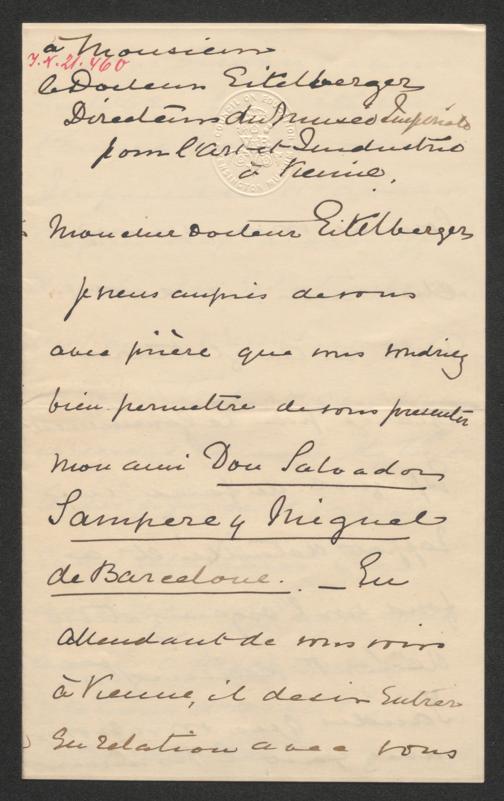 à Monsieur
I.N. 21.460
le Docteur Eitelberger
Directeur du Museo Impériale
pour l'Art et Industrie
à Vienne.
Mon cher Docteur Eitelberger
je viens auprès de vous
avec prière que vous voudriez
bien permettre de vous presenter
mon ami Don Salvador
Sampere y Miguel
de Barcelone. — En
attendant de vous voir
à Vienne, il desir entrer
en relation avec vous